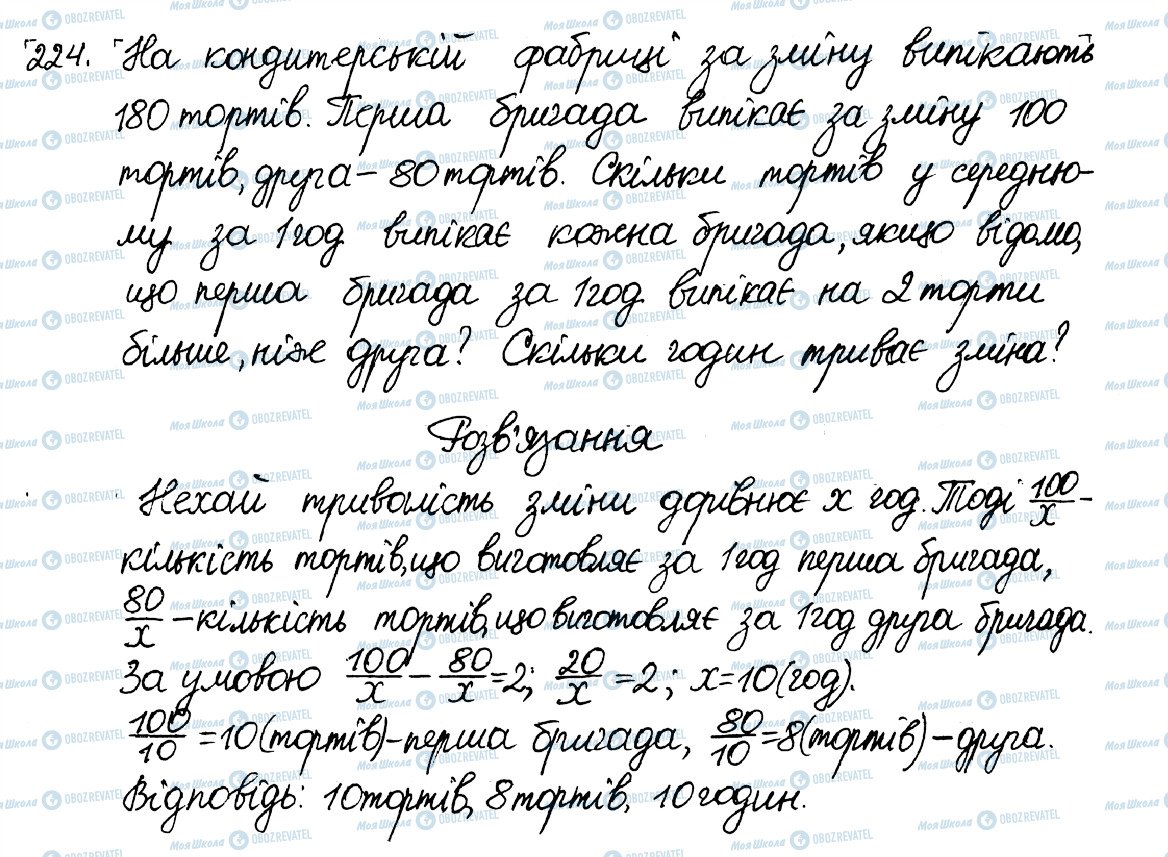 224. На кондитерській фабриці за зміну випікають
180 тортів. Перша бригада випікає за зміну 100
тортів, друга – 80 тортів. Скільки тортів у середньо-
му за 1 год випікає кожна бригада, якщо відомо,
що перша бригада за 1 год випікає на 2 торти
більше, ніж друга? Скільки годин триває зміна?
Розв'язання
Нехай тривалість зміни дорівнює x год. Тоді 100/x –
кількість тортів, що виготовляє за 1 год перша бригада,
80/x – кількість тортів, що виготовляє за 1 год друга бригада.
За умовою 100/x – 80/x = 2; 20/x = 2; x = 10 (год).
100/10 = 10 (тортів) – перша бригада, 80/10 = 8 (тортів) – друга.
Відповідь: 10 тортів, 8 тортів, 10 годин.